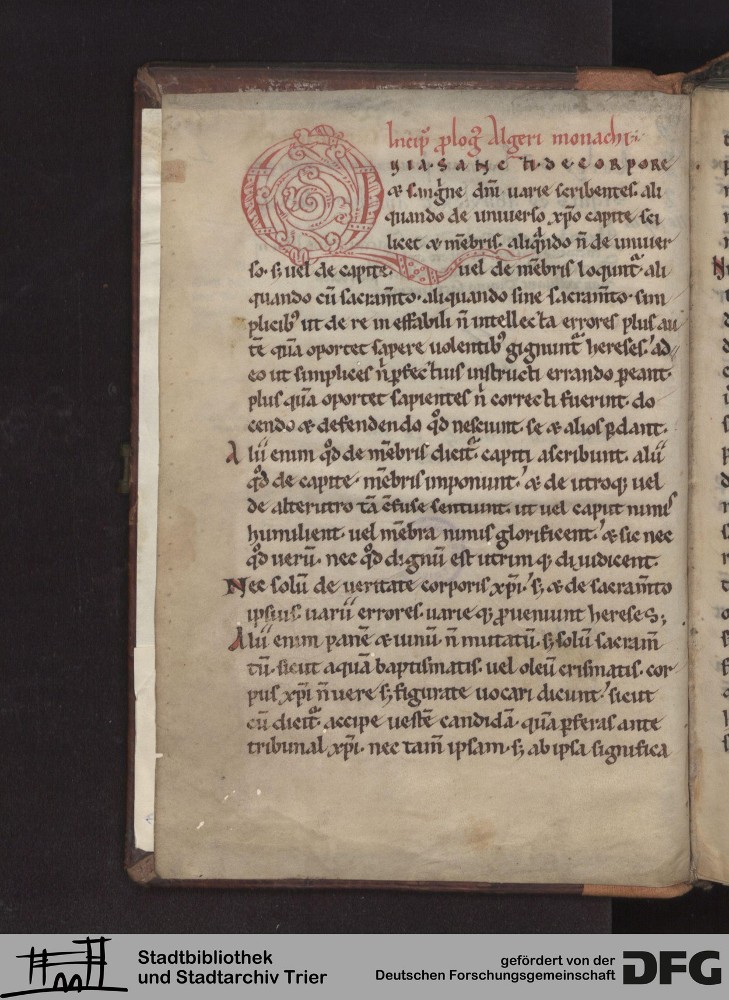 Incip̄ ꝓlogꝰ Algeri monachi
QUIA SANCTI DE CORPORE
& sanguine dn̄i uarie scribentes. ali
quando de uniuerso xp̄o capite sci
licet & mēbris. aliqͣndo n̄ de uniuer
so. sꝫ uel de capite. uel de mēbris loquunt᷑. ali
quando cū sacram̄to. aliquando sine sacram̄to. sim
plicibꝰ ut de re in effabili n̄ intellecta errores plus au
tē quā oportet sapere uolentibꝰ gignunt᷑ hereses. ad
eo ut simplices n̄ ꝑfectius instructi errando ꝑeant.
plus quā oportet sapientes n̄ correcti fuerint. do
cendo & defendendo qd̄ nesciunt. se & alios ꝑdant.
Alii enim qd̄ de mēbris dicit᷑. capiti ascribunt. alii
qd̄ de capite. mēbris imponunt. & de utroqꝫ uel
de alterutro tā c̄fuse sentiunt. ut uel caput nimis
humilient. uel mēbra nimis glorificent. & sic nec
qd̄ uerū. nec qd̄ dignū est utrimqꝫ diiudicent.
Nec solū de ueritate corporis xp̄i. sꝫ & de sacram̄to
ipsius. uarii errores. uarieqꝫ ꝓueniunt hereses;
Alii enim panē & uinū. n̄ mutatū. sꝫ solū sacram̄
tū. sicut aquā baptismatis. uel oleū crismatis. cor
pus xp̄i n̄ uere sꝫ figurate uocari dicunt. sicut
cū dicit᷑. accipe uestē candidā. quā ꝑferas ante
tribunal xp̄i. nec tam̄ ipsam. sꝫ ab ipsa significa
Stadtbibliothek
und Stadtarchiv Trier
gefördert von der
Deutschen Forschungsgemeinschaft
DFG